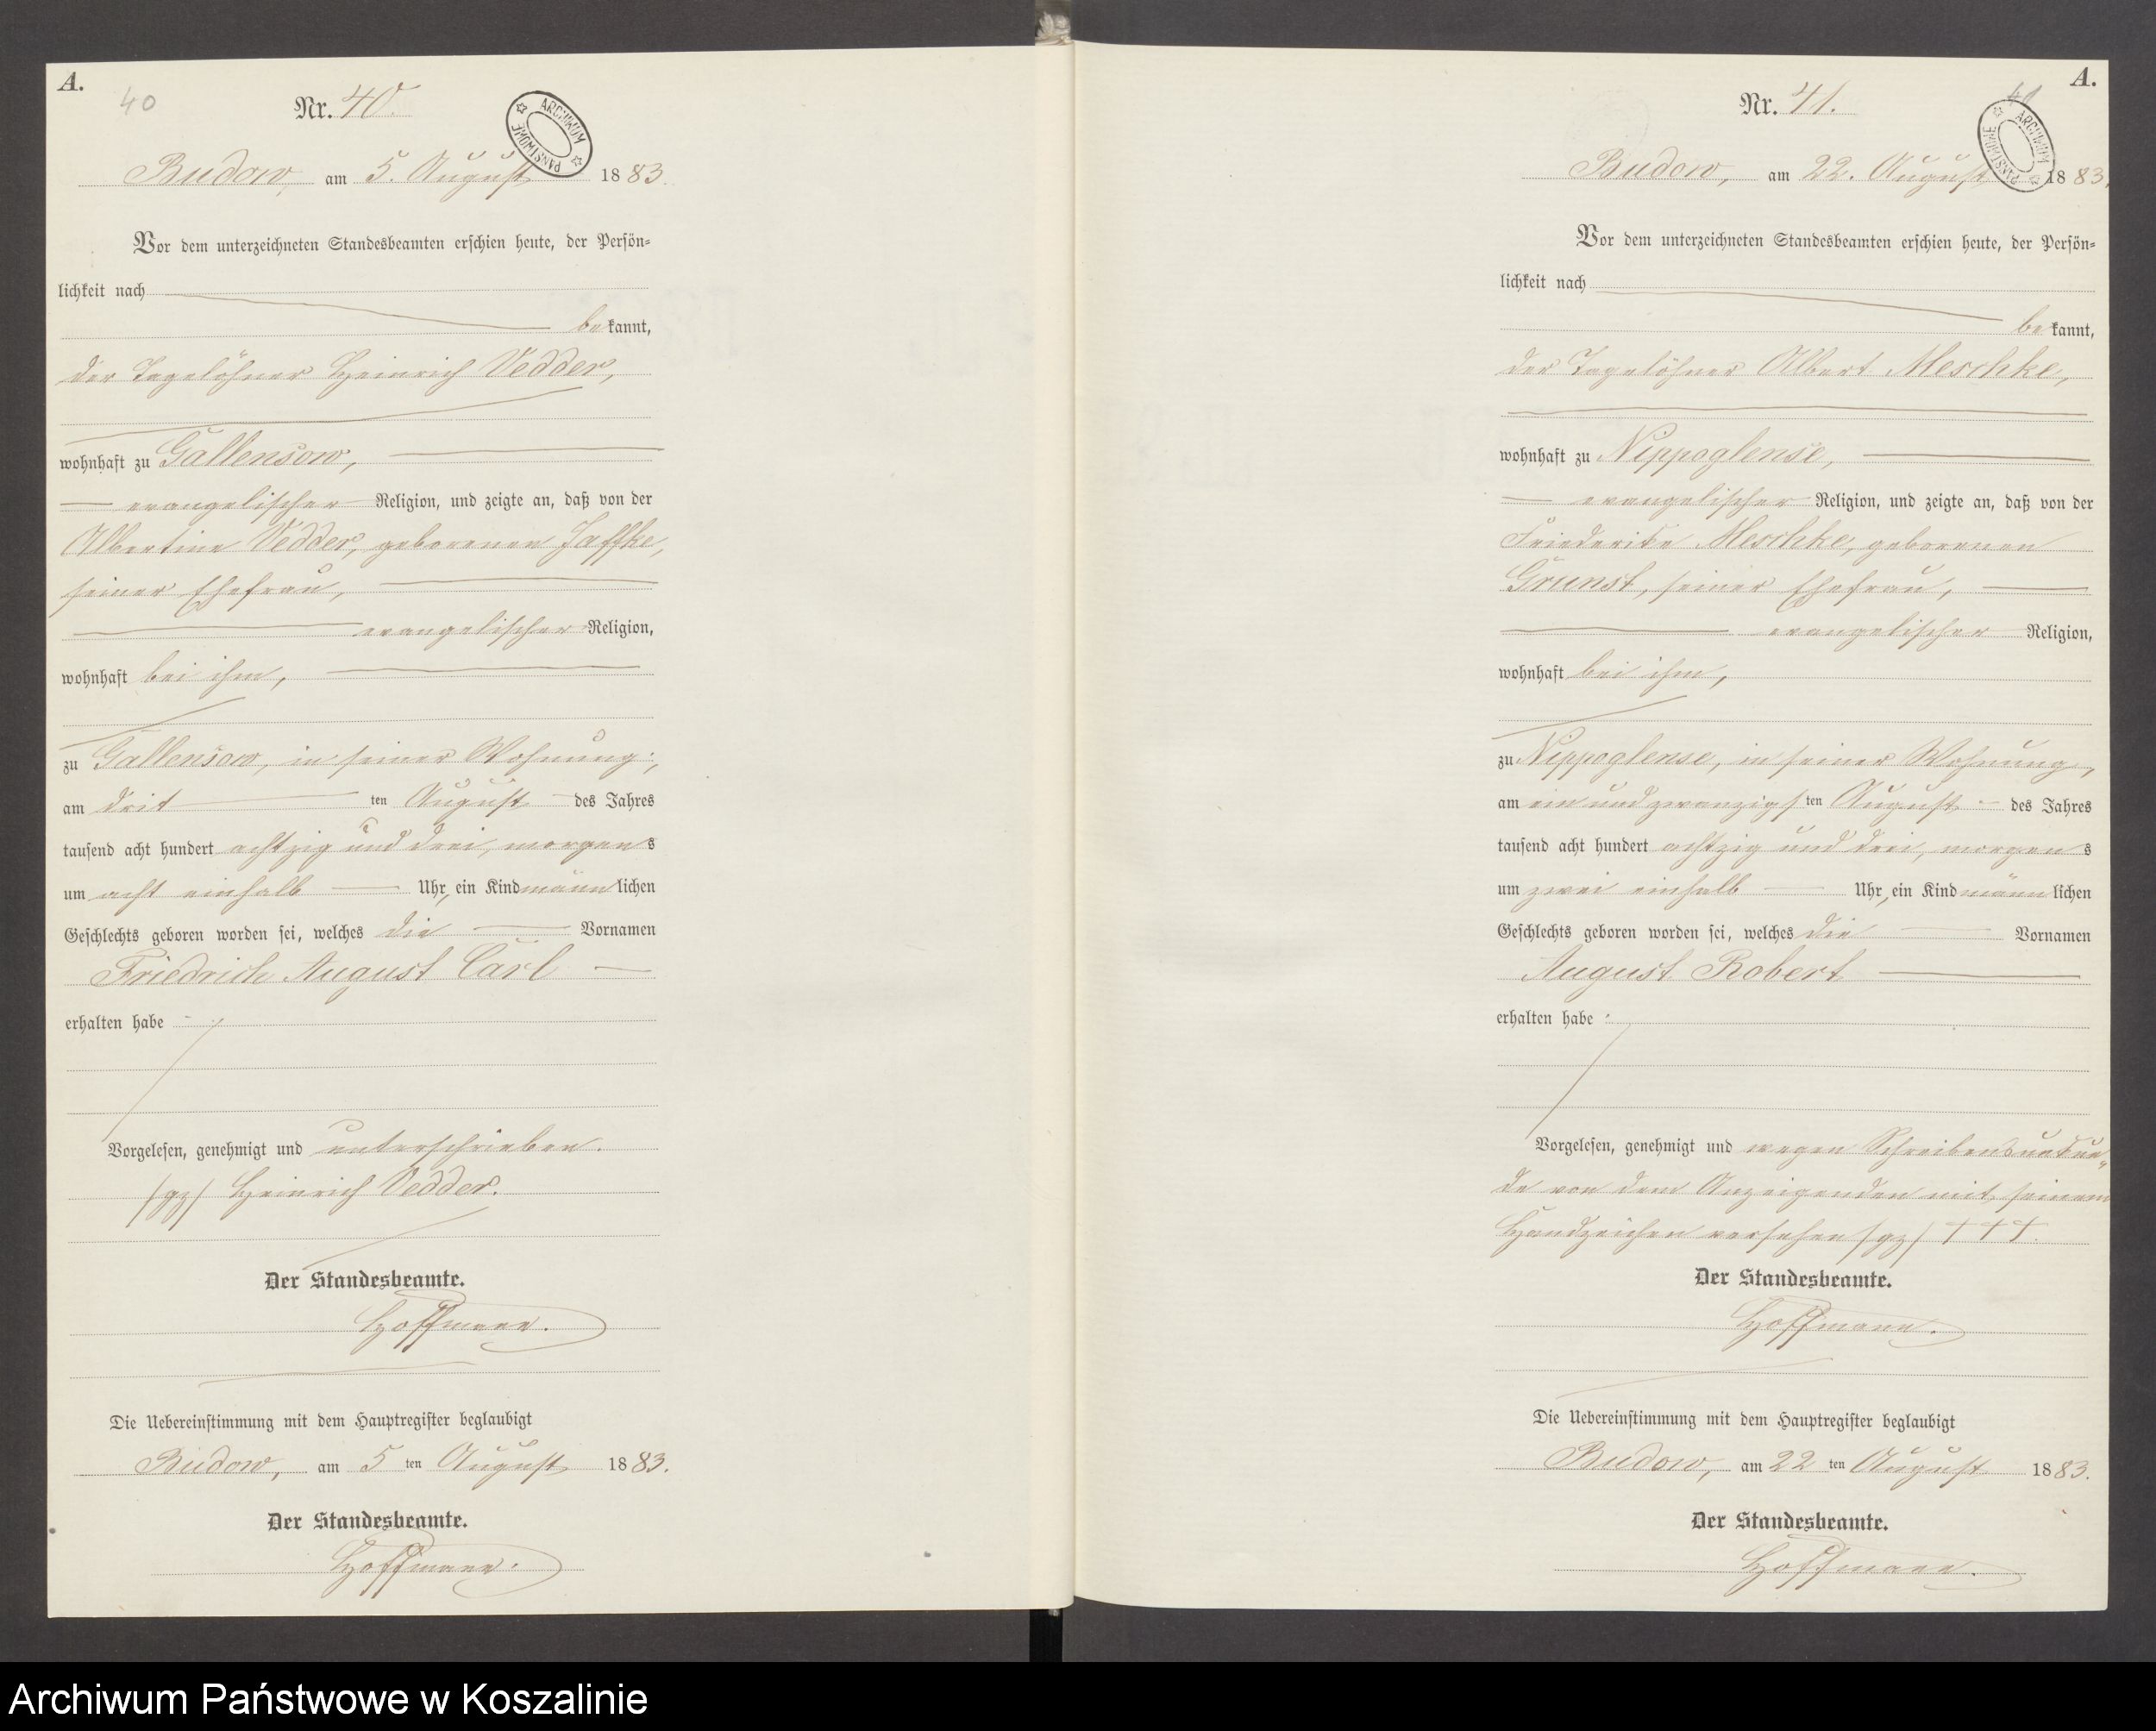 A.
40
Nr. 40.
ARCHIWUM PAŃSTWOWE
Budow, am 5. August 1883.
Vor dem unterzeichneten Standesbeamten erschien heute, der Persön-
lichkeit nach
bekannt,
der Tagelöhner Heinrich Vedder,
wohnhaft zu Gallensow,
evangelischer Religion, und zeigte an, daß von der
Albertine Vedder, geborenen Jaffke,
seiner Ehefrau,
evangelischer Religion,
wohnhaft bei ihm,
zu Gallensow, in seiner Wohnung,
am drit ten August des Jahres
tausend acht hundert achtzig und drei, morgens
um acht einhalb Uhr, ein Kind männlichen
Geschlechts geboren worden sei, welches die Vornamen
Friedrich August Carl
erhalten habe
Vorgelesen, genehmigt und unterschrieben.
/gz/ Heinrich Vedder.
Der Standesbeamte.
Hoffmann.
Die Uebereinstimmung mit dem Hauptregister beglaubigt
Budow, am 5 ten August 1883.
Der Standesbeamte.
Hoffmann.
A.
41
Nr. 41.
ARCHIWUM PAŃSTWOWE
Budow, am 22. August 1883.
Vor dem unterzeichneten Standesbeamten erschien heute, der Persön-
lichkeit nach
bekannt,
der Tagelöhner Albert Meschke,
wohnhaft zu Nippoglense,
evangelischer Religion, und zeigte an, daß von der
Friederike Meschke, geborenen
Grunst, seiner Ehefrau,
evangelischer Religion,
wohnhaft bei ihm,
zu Nippoglense, in seiner Wohnung,
am ein und zwanzigsten August des Jahres
tausend acht hundert achtzig und drei, morgens
um zwei einhalb Uhr, ein Kind männlichen
Geschlechts geboren worden sei, welches die Vornamen
August Robert
erhalten habe
Vorgelesen, genehmigt und wegen Schreibensunkun-
de von dem Anzeigenden mit seinem
Handzeichen versehen /gz/ +++.
Der Standesbeamte.
Hoffmann.
Die Uebereinstimmung mit dem Hauptregister beglaubigt
Budow, am 22 ten August 1883.
Der Standesbeamte.
Hoffmann.
Archiwum Państwowe w Koszalinie